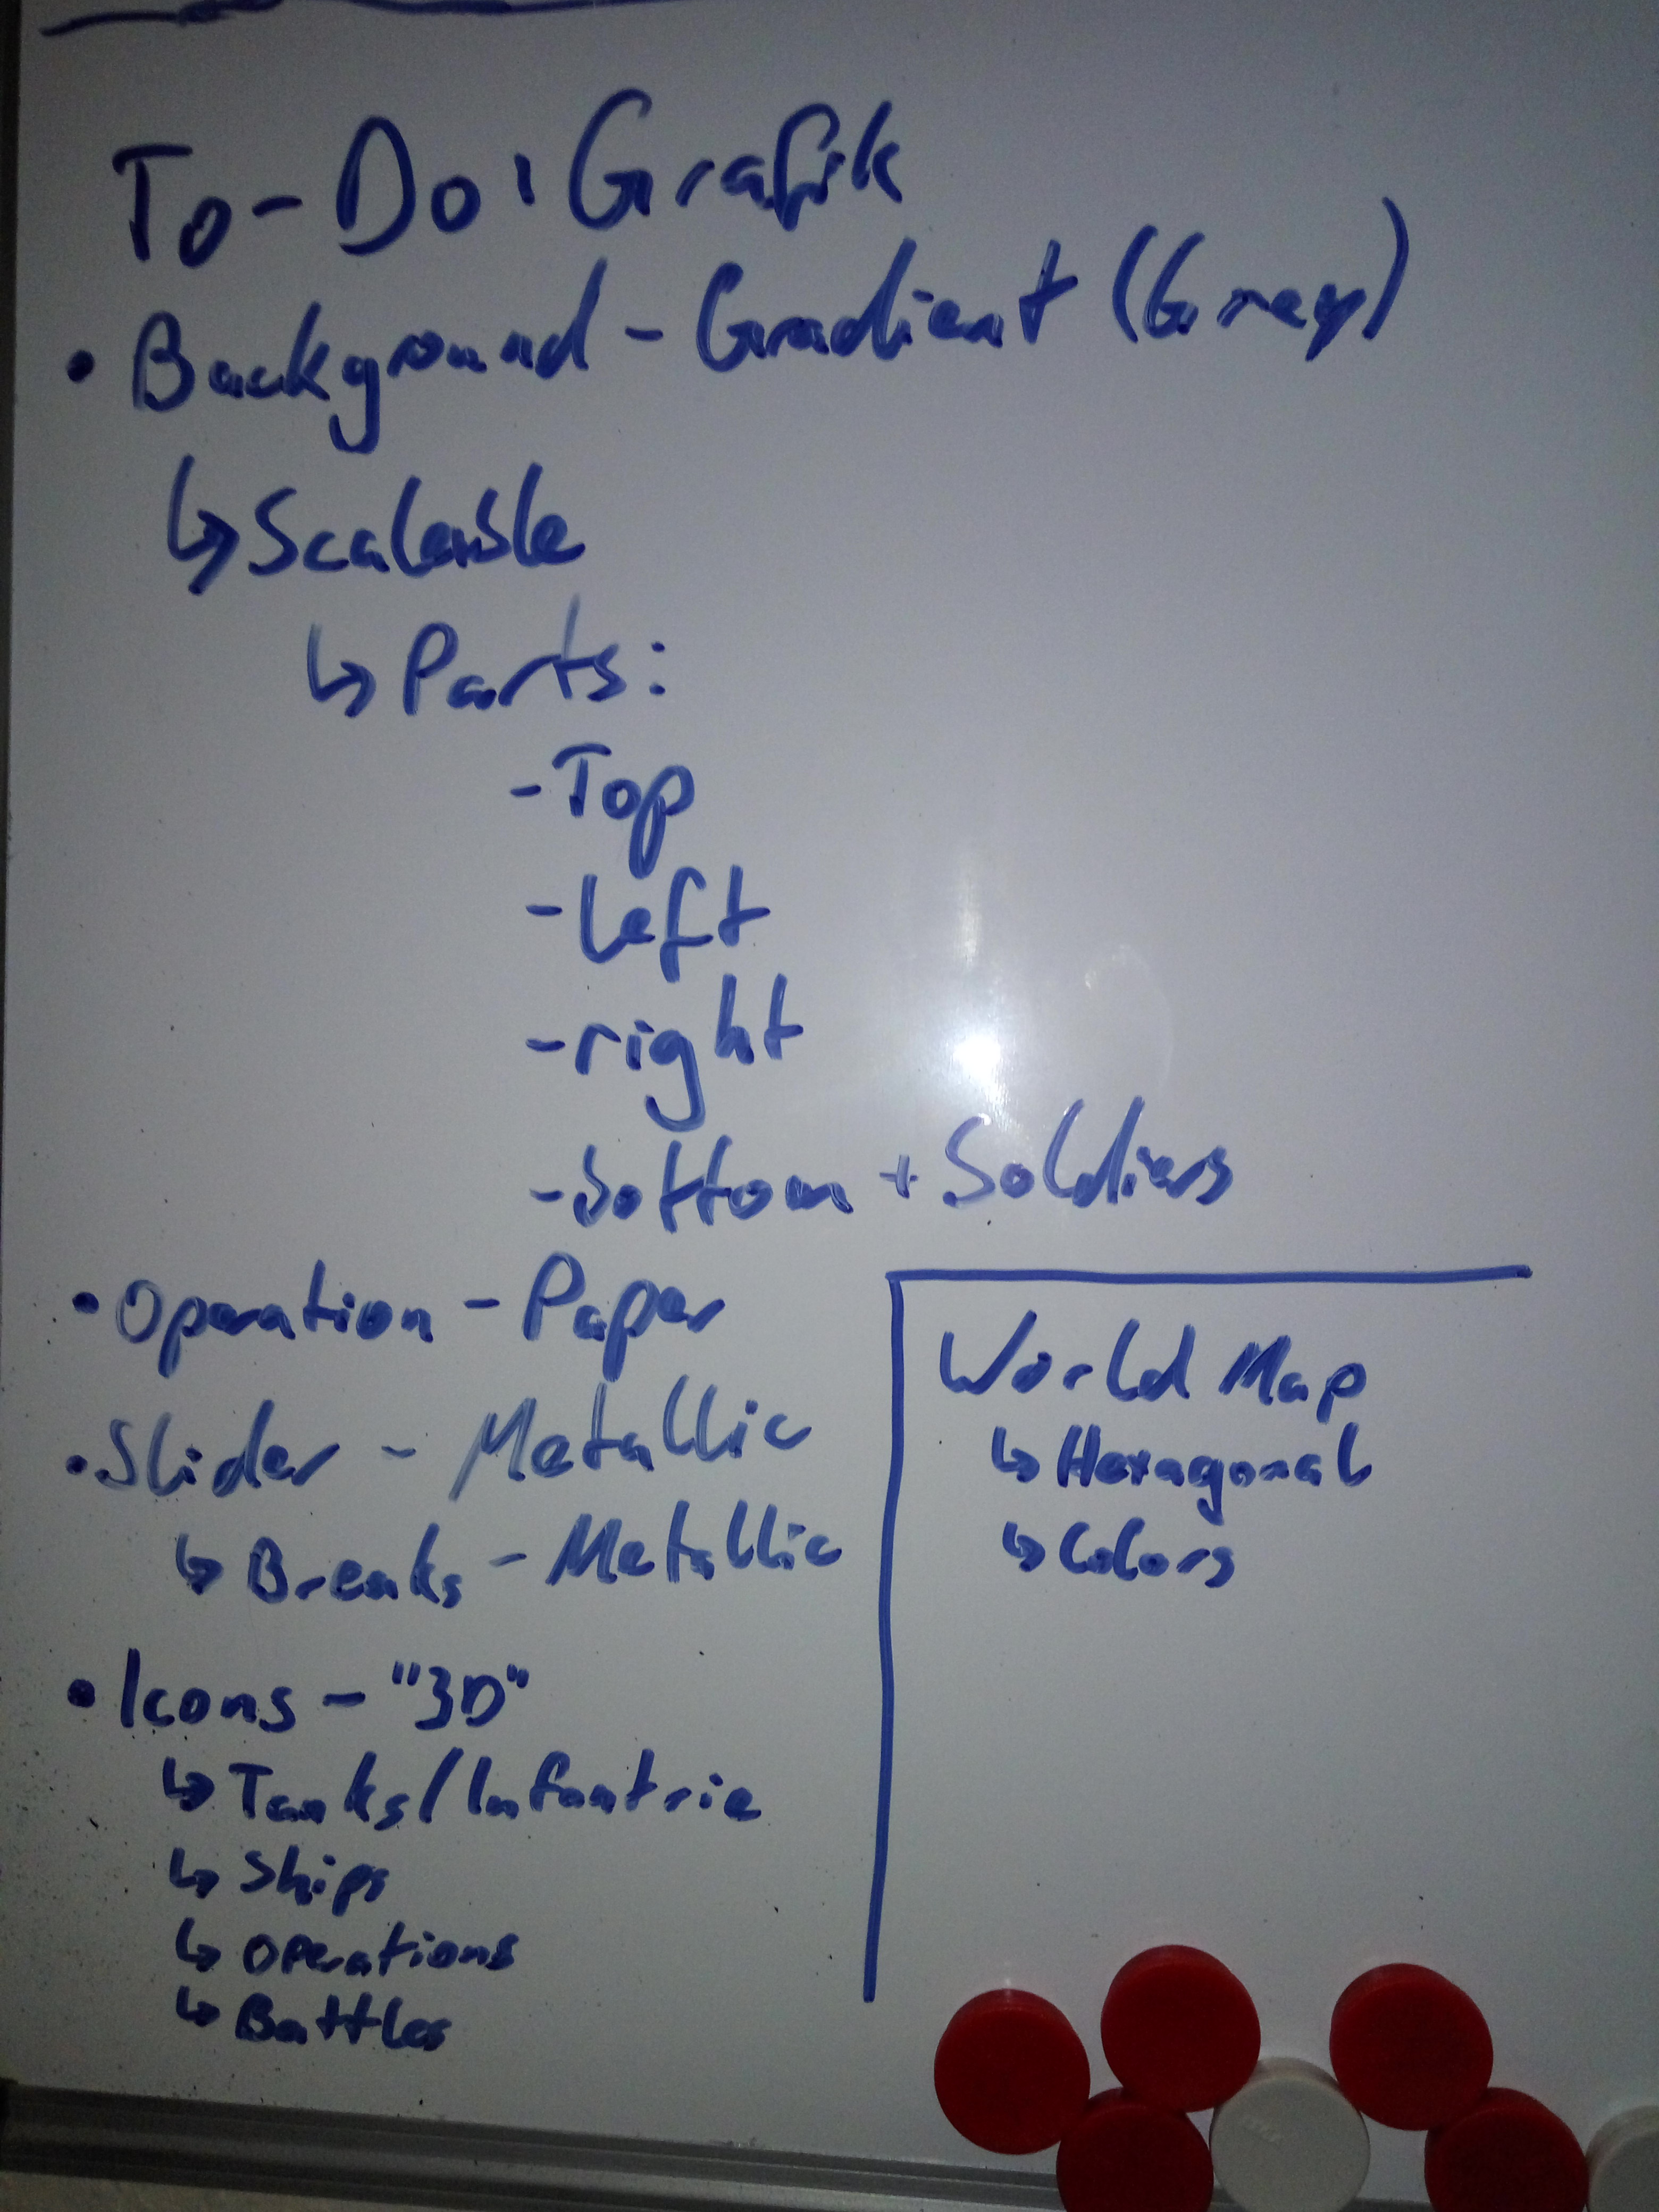 To-Do: Grafik
• Background - Gradient (Grey)
↳ Scaleable
↳ Parts:
- Top
- left
- right
- bottom + Soldiers
• Operation - Paper
• Slider - Metallic
↳ Breaks - Metallic
• Icons - "3D"
↳ Tanks/Infantrie
↳ Ships
↳ Operations
↳ Battles
World Map
↳ Hexagonal
↳ Colors